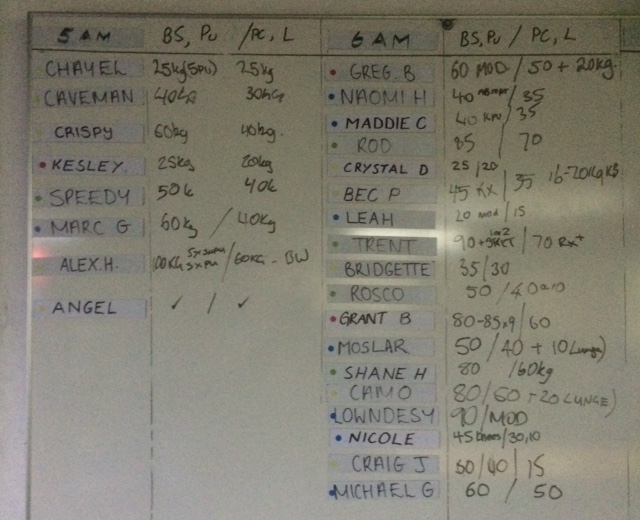 5 AM BS, Pu / PC, L
CHAYEL 25kg(5PU) 25kg
CAVEMAN 40kg 30kg
CRISPY 60kg 40kg.
KESLEY. 25kg 20kg
SPEEDY 50k 40k
MARC G 60kg / 40kg
ALEX.H. 100KG 5xPU / 60KG - BW
ANGEL ✓ / ✓
6 AM BS, Pu / PC, L
GREG. B 60 MOD / 50 + 20kg.
NAOMI H 40 / 35
MADDIE C 40 KPU / 35
ROD 85 / 70
CRYSTAL D 25 / 20
BEC P 45 RX / 35 16-20kg KB
LEAH 20 MOD / 15
TRENT 90 / 70 Rx+
BRIDGETTE 35 / 30
ROSCO 50 / 40
GRANT B 80-85x9 / 60
MOSLAR 50 / 40 + 10 Lunge)
SHANE H 80 / 60kg
CAMO 80 / 60 + 20 LUNGE)
LOWNDESY 90 / MOD
NICOLE 45 / 30,10
CRAIG J 50 / 40 / 15
MICHAEL G 60 / 50